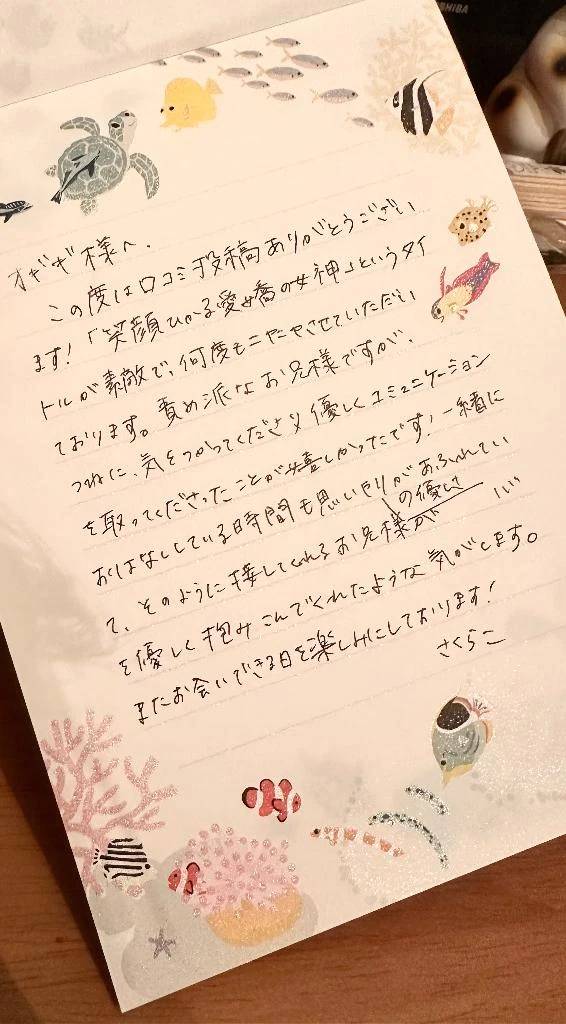 TOSHIBA
オギギ様へ.
この度は口コミ投稿ありがとうござい
ます!「笑顔ひかる愛嬌の女神」というタイ
トルが素敵で、何度もニヤニヤさせていただい
ております。責め派なお兄様ですが、
つねに、気をつかってくださり優しくコミュニケーション
を取ってくださったことが嬉しかったです!一緒に
おはなししている時間も思いやりがあふれてい
て、そのように接してくれるお兄様の優しさ
を優しく抱みこんでくれたような気がします。
またお会いできる日を楽しみにしております!
さくらこ